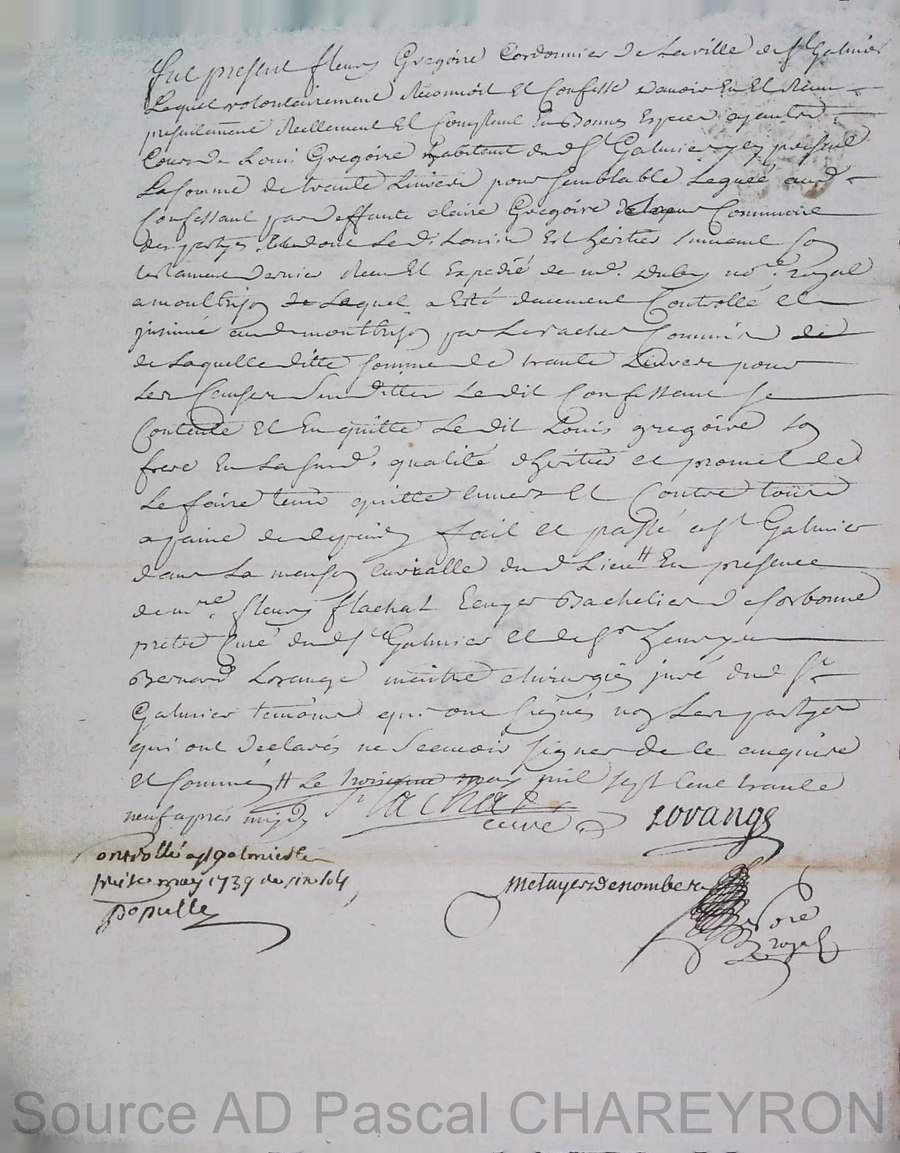 fut present fleury Gregoire Cordonnier de La ville de St Galmier
Lequel volontairement Reconnoit Et Confesse d'avoir Eu Et Receu
presentement Reellement Et Comptant En Bonnes Especes ayantes
Cours de Louis Gregoire habitant dud St Galmier ycy present
La somme de trante Livres pour semblable Leguée aud
Confessant par deffunte claire Gregoire Leur sœur Commune
des partyes dont Le d. Louis Est heritier suivant son
testament dernier Receu Et Expedié de me. notre. royal
a montbrison Lequel a Esté duement Controllé et
jnsinué aud montbrison par Levacher Commis
de Laquelle ditte somme de trante Livres pour
Les Causes Susdittes Le dit Confessant se
Contente Et En quitte Le dit Louis gregoire son
frere En Sa susd. qualité d'heritier et promet de
Le faire tenir quitte Envers Et Contre tous
a paine de depends fait et passé a St Galmier
dans La maison curialle dud Lieu H En presence
de mre fleury flachat Ecuyer Bachelier de sorbonne
pretre Curé dud St Galmier et de Sr
Bernard Lorange maitre chirurgien juré dud St
Galmier temoins qui ont signés non Les partyes
qui ont declarés ne Scavoir signer de ce enquise
et sommé H Le troisieme may mil sept Cent trante
neuf après midy
flachat
curé
Lorange
Controllé a St galmier le
may 1739 six sols
populle
metayer denombre
nore
Royal
Source AD Pascal CHAREYRON